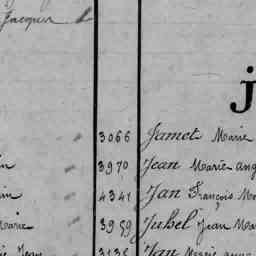 Jacques
j
3066 Jamet Marie
3970 Jean Marie ang
4341 Jan François Ma
Marie 3959 Juhel Jean Ma
Jean 3135 Jan Marie anne